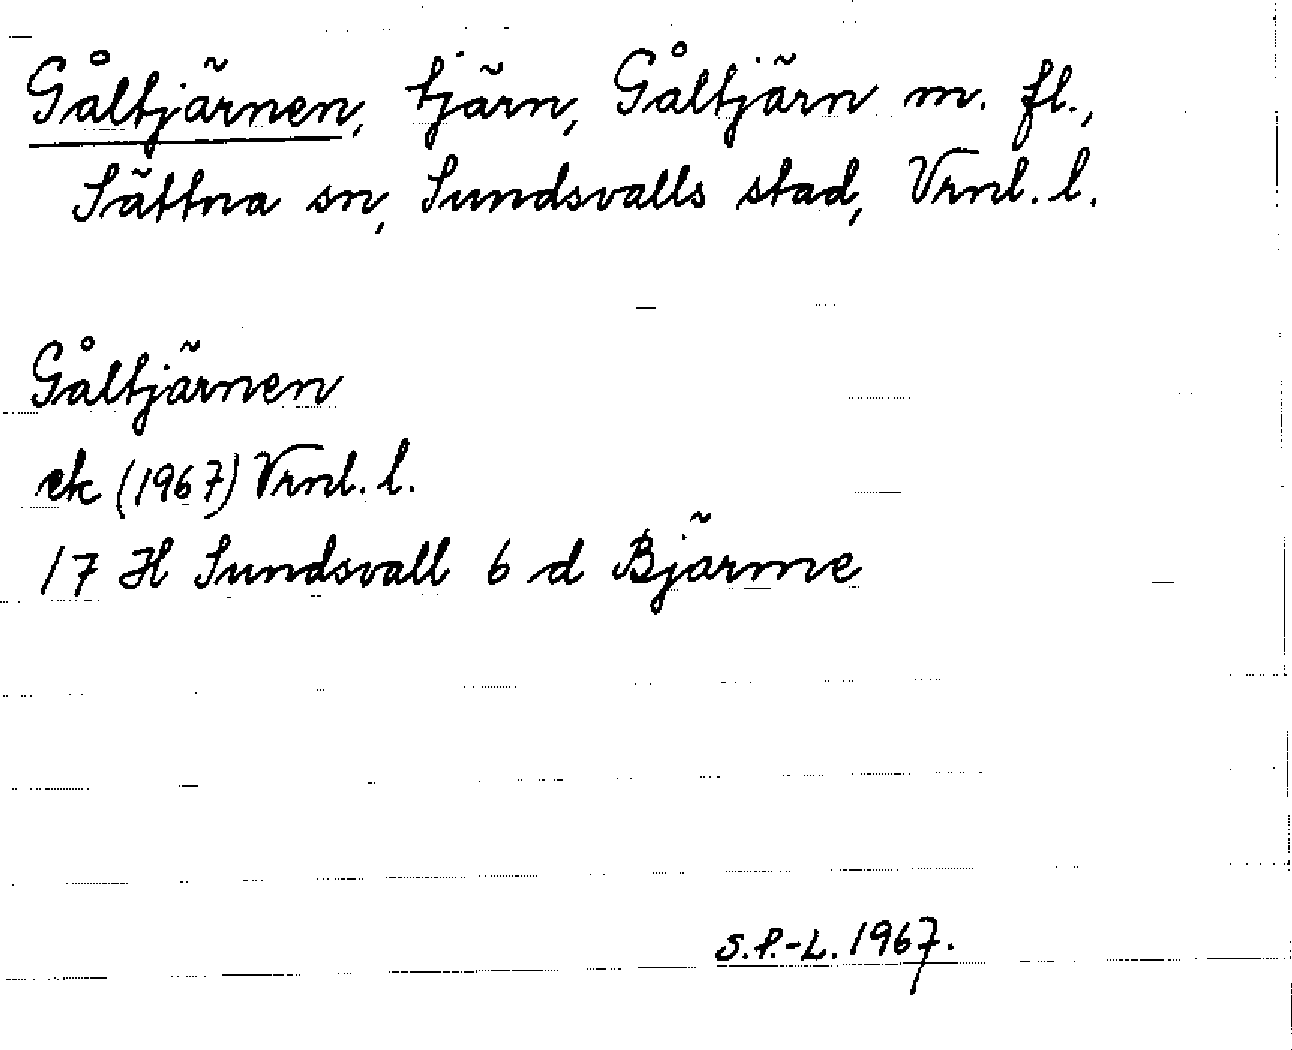 Gåltjärnen, tjärn, Gåltjärn m. fl.,
Sättna sn, Sundsvalls stad, Vrnl. l.
Gåltjärnen
ek (1967) Vrnl. l.
17 H Sundsvall 6 d Bjärme
S.P.-L. 1967.